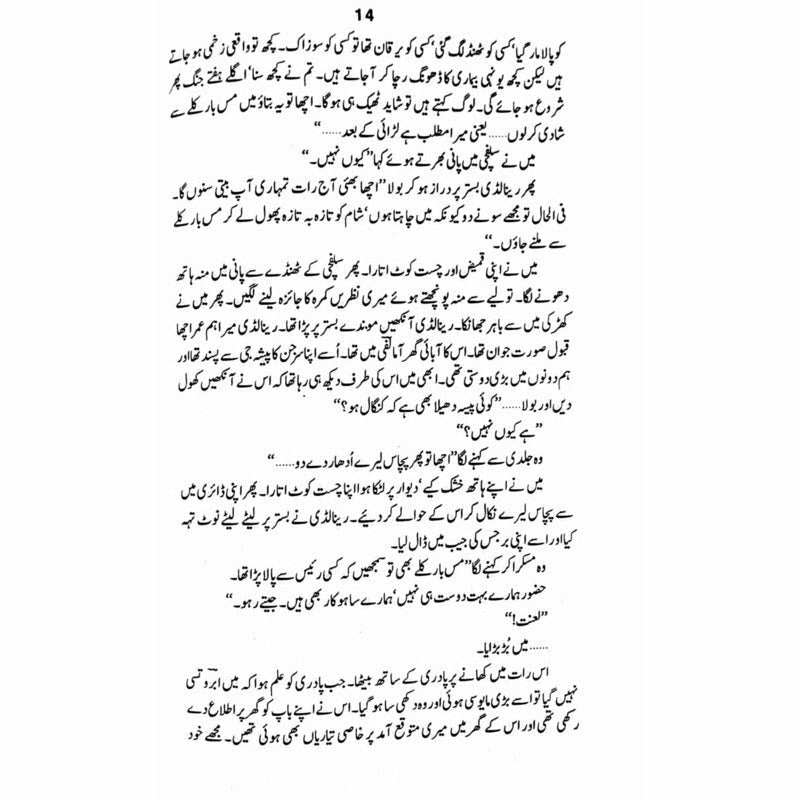 14
کو پالا مار گیا‘ کسی کو ٹھنڈ لگ گئی‘ کسی کو یرقان تھا تو کسی کو سوزاک۔ کچھ تو واقعی زخمی ہو جاتے
ہیں لیکن کچھ یونہی بیماری کا ڈھونگ رچا کر آ جاتے ہیں۔ تم نے کچھ سنا‘ اگلے ہفتے جنگ پھر
شروع ہو جائے گی۔ لوگ کہتے ہیں تو شاید ٹھیک ہی ہو گا۔ اچھا تو یہ بتاؤ میں مس بارکلے سے
شادی کر لوں...... یعنی میرا مطلب ہے لڑائی کے بعد......“
میں نے سلفچی میں پانی بھرتے ہوئے کہا ”کیوں نہیں۔“
پھر رینالڈی بستر پر دراز ہو کر بولا ”اچھا بھئی آج رات تمہاری آپ بیتی سنوں گا۔
فی الحال تو مجھے سونے دو کیونکہ میں چاہتا ہوں‘ شام کو تازہ بہ تازہ پھول لے کر مس بارکلے
سے ملنے جاؤں۔“
میں نے اپنی قمیض اور چست کوٹ اتارا۔ پھر سلفچی کے ٹھنڈے سے پانی میں منہ ہاتھ
دھونے لگا۔ تولیے سے منہ پونچھتے ہوئے میری نظریں کمرہ کا جائزہ لینے لگیں۔ پھر میں نے
کھڑکی میں سے باہر جھانکا۔ رینالڈی آنکھیں موندے بستر پر پڑا تھا۔ رینالڈی میرا ہم عمر اچھا
قبول صورت جوان تھا۔ اس کا آبائی گھر آمالفی میں تھا۔ اُسے اپنا سرجن کا پیشہ جی سے پسند تھا اور
ہم دونوں میں بڑی دوستی تھی۔ ابھی میں اس کی طرف دیکھ ہی رہا تھا کہ اس نے آنکھیں کھول
دیں اور بولا...... ”کوئی پیسہ دھیلا بھی ہے کہ کنگال ہو؟“
”ہے کیوں نہیں؟“
وہ جلدی سے کہنے لگا ”اچھا تو پھر پچاس لیرے اُدھار دے دو......“
میں نے اپنے ہاتھ خشک کیے‘ دیوار پر لٹکا ہوا اپنا چست کوٹ اتارا۔ پھر اپنی ڈائری میں
سے پچاس لیرے نکال کر اس کے حوالے کر دیئے۔ رینالڈی نے بستر پر لیٹے لیٹے نوٹ تہہ
کیا اور اسے اپنی برجس کی جیب میں ڈال لیا۔
وہ مسکرا کر کہنے لگا ”مس بارکلے بھی تو سمجھیں کہ کسی رئیس سے پالا پڑا تھا۔
حضور ہمارے بہت دوست ہی نہیں‘ ہمارے ساہوکار بھی ہیں۔ جیتے رہو۔“
”لعنت!“
...... میں بُڑبڑایا۔
اس رات میں کھانے پر پادری کے ساتھ بیٹھا۔ جب پادری کو علم ہوا کہ میں ابروتسی
نہیں گیا تو اسے بڑی مایوسی ہوئی اور وہ دکھی سا ہو گیا۔ اس نے اپنے باپ کو گھر پر اطلاع دے
رکھی تھی اور اس کے گھر میں میری متوقع آمد پر خاصی تیاریاں بھی ہوئی تھیں۔ مجھے خود